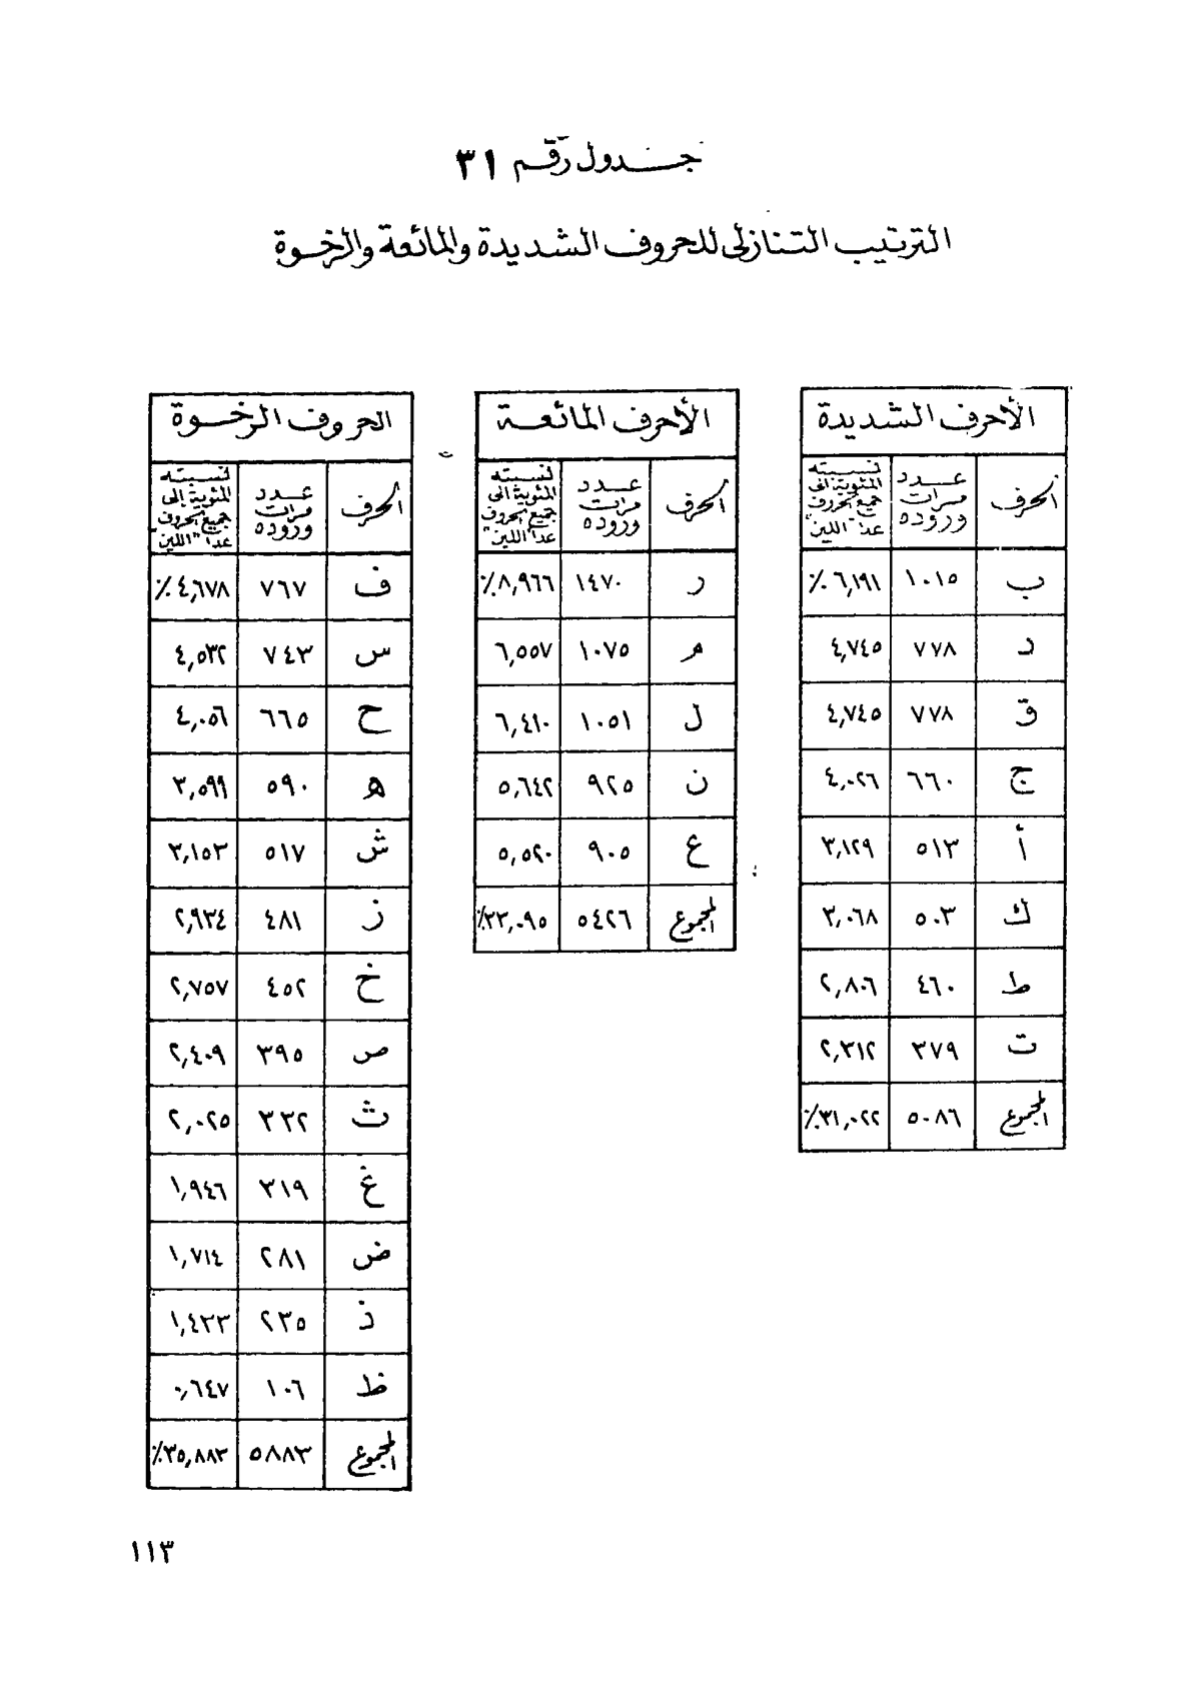 جدول رقم ٣١
الترتيب التنازلي للحروف الشديدة والمائعة والرخوة
الأحرف الشديدة
الحرف | عدد مرات وروده | نسبته المئوية إلى جميع الحروف عدا "اللين"
ب | ١٠١٥ | ٦,١٩١٪
د | ٧٧٨ | ٤,٧٤٥
ق | ٧٧٨ | ٤,٧٤٥
ج | ٦٦٠ | ٤,٠٢٦
أ | ٥١٣ | ٣,١٢٩
ك | ٥٠٣ | ٣,٠٦٨
ط | ٤٦٠ | ٢,٨٠٦
ت | ٣٧٩ | ٢,٣١٢
المجموع | ٥٠٨٦ | ٣١,٠٢٢٪
الأحرف المائعة
الحرف | عدد مرات وروده | نسبته المئوية إلى جميع الحروف عدا "اللين"
ر | ١٤٧٠ | ٨,٩٦٦٪
م | ١٠٧٥ | ٦,٥٥٧
ل | ١٠٥١ | ٦,٤١٠
ن | ٩٢٥ | ٥,٦٤٢
ع | ٩٠٥ | ٥,٥٢٠
المجموع | ٥٤٢٦ | ٣٣,٠٩٥٪
الحروف الرخوة
الحرف | عدد مرات وروده | نسبته المئوية إلى جميع الحروف عدا "اللين"
ف | ٧٦٧ | ٤,٦٧٨٪
س | ٧٤٣ | ٤,٥٣٢
ح | ٦٦٥ | ٤,٠٥٦
ه | ٥٩٠ | ٣,٥٩٩
ش | ٥١٧ | ٣,١٥٣
ز | ٤٨١ | ٢,٩٣٤
خ | ٤٥٢ | ٢,٧٥٧
ص | ٣٩٥ | ٢,٤٠٩
ث | ٣٣٢ | ٢,٠٢٥
غ | ٣١٩ | ١,٩٤٦
ض | ٢٨١ | ١,٧١٤
ذ | ٢٣٥ | ١,٤٣٣
ظ | ١٠٦ | ٠,٦٤٧
المجموع | ٥٨٨٣ | ٣٥,٨٨٣٪
١١٣